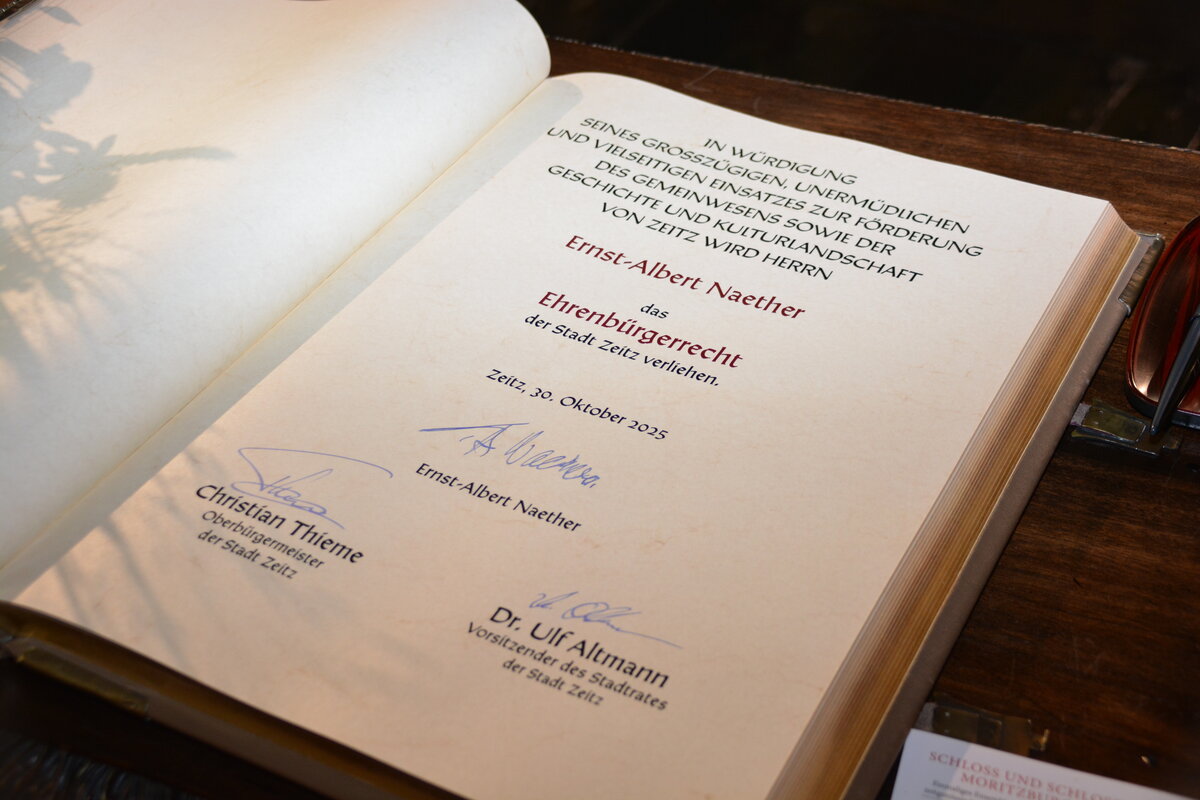 IN WÜRDIGUNG
SEINES GROSSZÜGIGEN, UNERMÜDLICHEN
UND VIELSEITIGEN EINSATZES ZUR FÖRDERUNG
DES GEMEINWESENS SOWIE DER
GESCHICHTE UND KULTURLANDSCHAFT
VON ZEITZ WIRD HERRN
Ernst-Albert Naether
das
Ehrenbürgerrecht
der Stadt Zeitz verliehen.
Zeitz, 30. Oktober 2025
Ernst-Albert Naether
Christian Thieme
Oberbürgermeister
der Stadt Zeitz
Dr. Ulf Altmann
Vorsitzender des Stadtrates
der Stadt Zeitz
SCHLOSS UND SCHLOSS